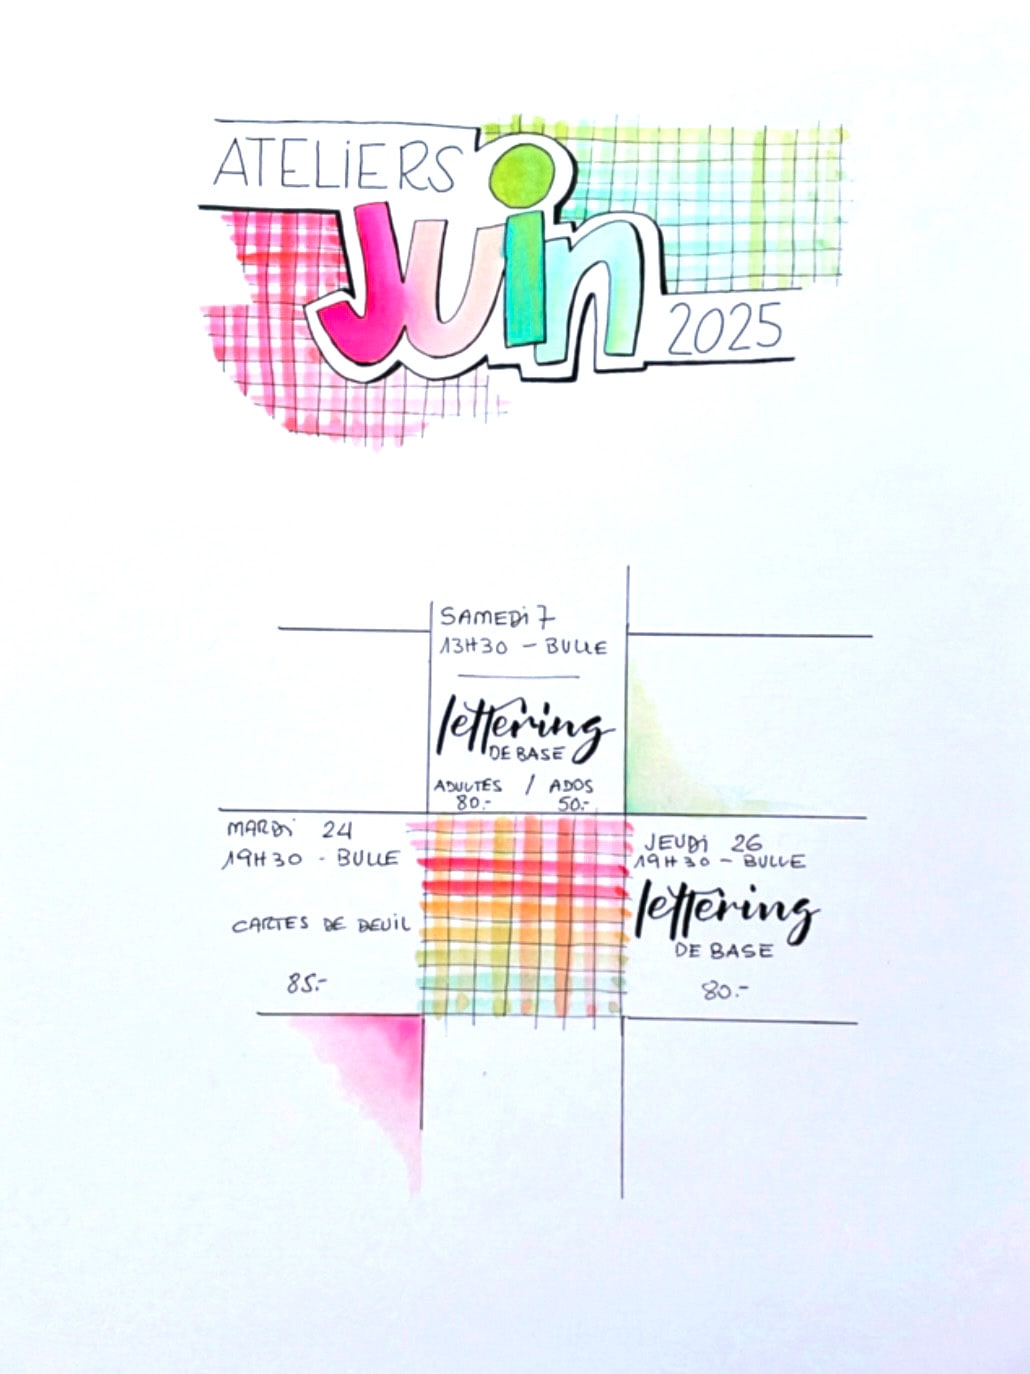 ATELiERS
Juin
2025
SAMEDi 7
13H30 - BULLE
lettering
DE BASE
ADULTES / ADOS
80.- 50.-
MARDi 24
19H30 - BULLE
CARTES DE DEUiL
85.-
JEUDi 26
19H30 - BULLE
lettering
DE BASE
80.-